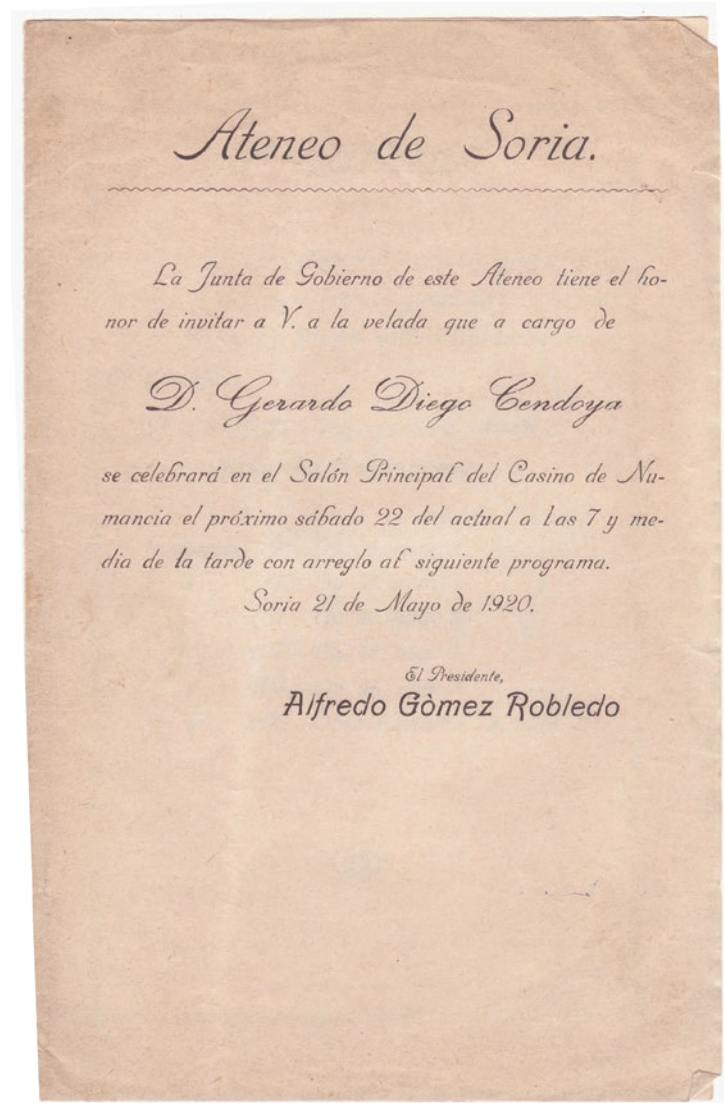 Ateneo de Soria.
La Junta de Gobierno de este Ateneo tiene el ho-
nor de invitar a V. a la velada que a cargo de
D. Gerardo Diego Cendoya
se celebrará en el Salón Principal del Casino de Nu-
mancia el próximo sábado 22 del actual a las 7 y me-
dia de la tarde con arreglo al siguiente programa.
Soria 21 de Mayo de 1920.
El Presidente,
Alfredo Gòmez Robledo